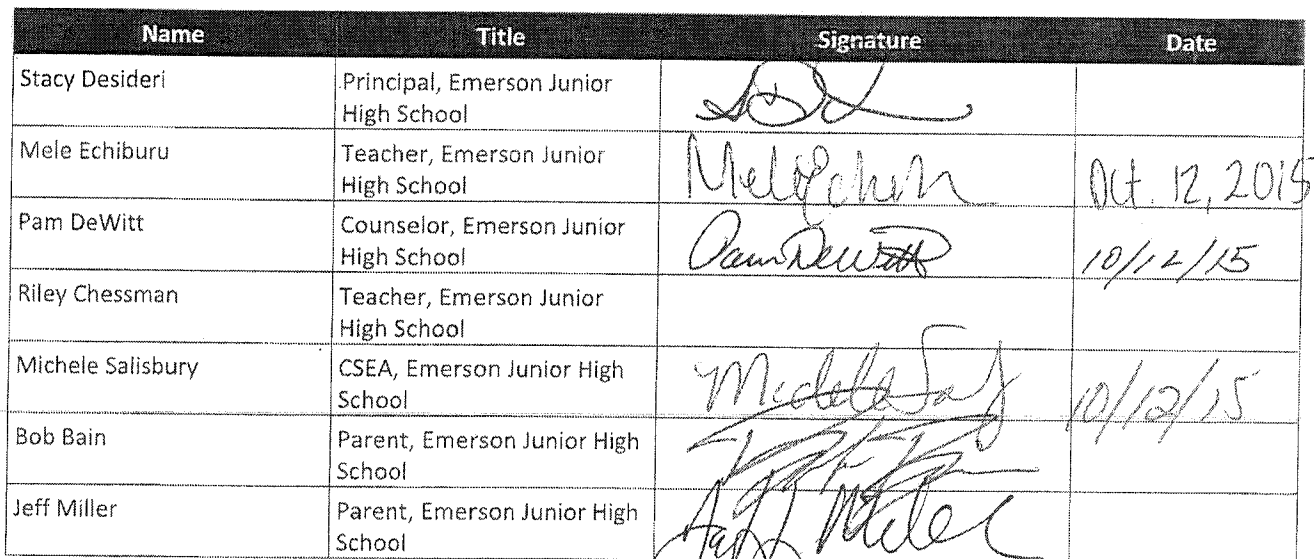 Name Title Signature Date
Stacy Desideri Principal, Emerson Junior
High School
Mele Echiburu Teacher, Emerson Junior
High School Oct. 12, 2015
Pam DeWitt Counselor, Emerson Junior
High School Pam DeWitt 10/12/15
Riley Chessman Teacher, Emerson Junior
High School
Michele Salisbury CSEA, Emerson Junior High
School Michele 10/12/15
Bob Bain Parent, Emerson Junior High
School
Jeff Miller Parent, Emerson Junior High
School Miller